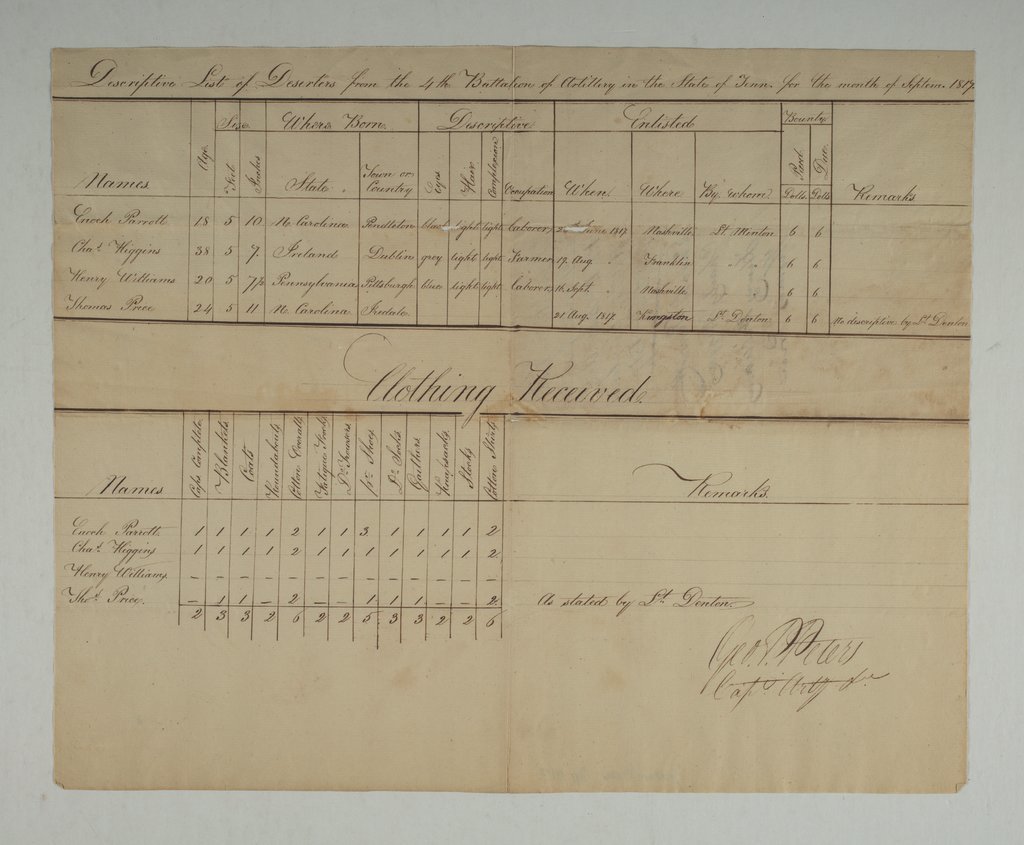 Descriptive List of Deserters from the 4th Battalion of Artillery in the State of Tenn. for the month of Septem. 1817.
Names Age Size Where Born Descriptive Enlisted Bounty Remarks
Feet Inches State Town or Country Eyes Hair Complexion Occupation When Where By whom Paid Due
Dolls. Dolls
Enoch Parrott 18 5 10 N. Carolina Pendleton light light laborer June 1817 Nashville Lt. Minton 6 6
Chas. Higgins 38 5 7. Ireland Dublin grey light light Farmer 17 Aug. " Franklin " " 6 6
Henry Williams 20 5 7½ Pennsylvania Pittsburgh blue light light laborer 16 Sept. " Nashville " 6 6
Thomas Price 24 5 11 N. Carolina Iredale 21 Aug. 1817 Kingston Lt. Denton 6 6 No descriptive by Lt. Denton
Clothing Received.
Names Caps Complete Blankets Coats Roundabouts Cotton Overalls Fatigue Frocks Do. Trousers pr. Shoes pr. Socks Gaithers Knapsacks Stocks Cotton Shirts Remarks.
Enoch Parrott 1 1 1 1 2 1 1 3 1 1 1 1 2
Chas. Higgins 1 1 1 1 2 1 1 1 1 1 1 1 2
Henry Williams – – – – – – – – – – – – –
Thos. Price. – 1 1 – 2 – – 1 1 1 – – 2 As stated by Lt. Denton.
2 3 3 2 6 2 2 5 3 3 2 2 6
Geo. P. Peters
Capt. Arty &c